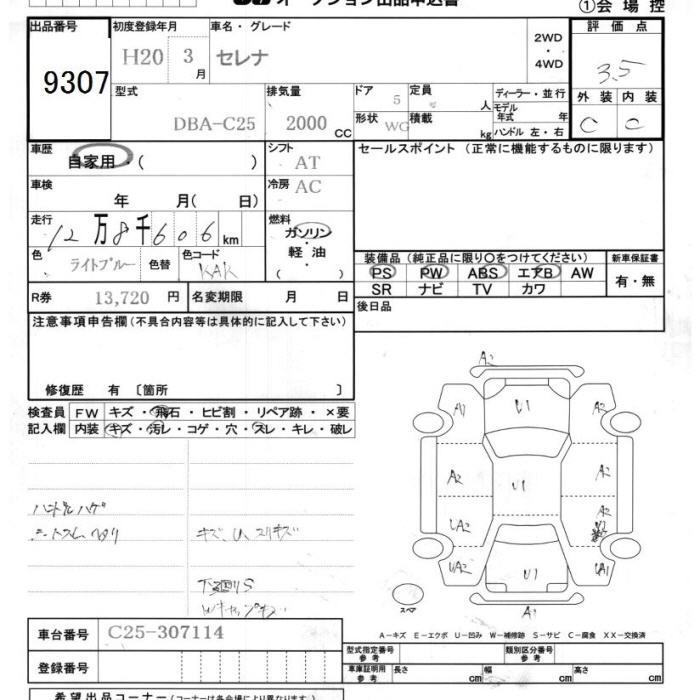 オークション出品申込書
①会場控
出品番号 初度登録年月 車名・グレード 2WD・4WD 評価点
9307 H20 3月 セレナ 3.5
型式 排気量 ドア 定員 人 ディーラー・並行 外装 内装
DBA-C25 2000 CC 5 形状 WG 積載 kg モデル年式 年 ハンドル 左・右 C C
車歴 自家用・( ) シフト AT セールスポイント(正常に機能するものに限ります)
車検 年 月( 日) 冷房 AC
走行 12万8千606km 燃料 ガソリン・軽油( )
色 ライトブルー 色替 色コード KAK
装備品(純正品に限り○をつけてください) 新車保証書
PS PW ABS エアB AW 有・無
SR ナビ TV カワ
R券 13,720円 名変期限 月 日 後日品
注意事項申告欄(不具合内容等は具体的に記入して下さい)
修復歴 有 〔箇所 〕
検査員記入欄 FW キズ・飛石・ヒビ割・リペア跡・×要
内装 キズ・汚レ・コゲ・穴・スレ・キレ・破レ
ハンドルハゲ
シートスレ、ヘタリ キズ、U、スリキズ
下廻りS
Wキャップキズ
A2
A1 U1 A2
A2 U1 A2
UA2 A2
UA2 U1 UA1
A1
スペア
A-キズ E-エクボ U-凹み W-補修跡 S-サビ C-腐食 XX-交換済
車台番号 C25-307114
登録番号
型式指定番号 参考 類別区分番号 参考
車庫証明用 参考 長さ cm 幅 cm 高さ cm
希望出品コーナー(コーナーは各会場により異なります)